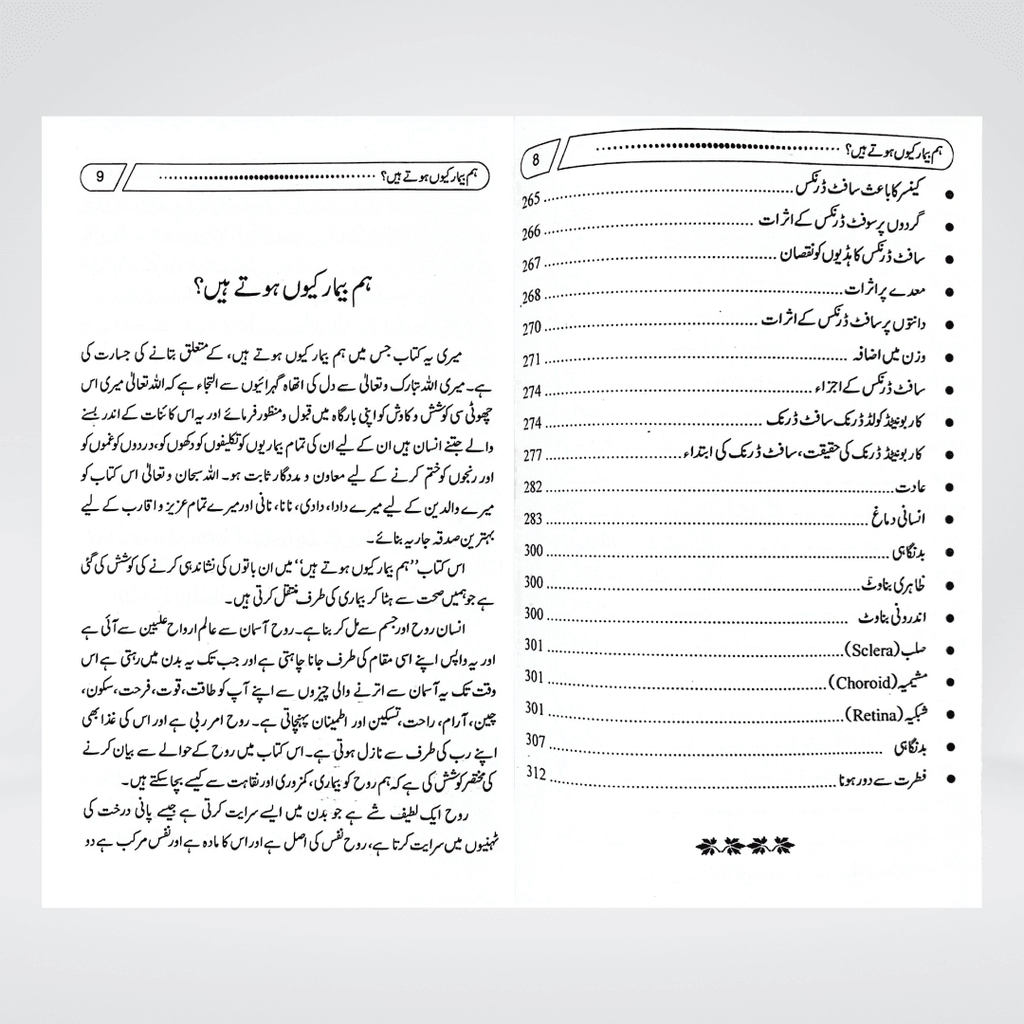 ہم بیمار کیوں ہوتے ہیں؟ 8
• کینسر کا باعث سافٹ ڈرنکس 265
• گردوں پر سوفٹ ڈرنکس کے اثرات 266
• سافٹ ڈرنکس کا ہڈیوں کو نقصان 267
• معدے پر اثرات 268
• دانتوں پر سافٹ ڈرنکس کے اثرات 270
• وزن میں اضافہ 271
• سافٹ ڈرنکس کے اجزاء 274
• کاربونیٹڈ کولڈ ڈرنک سافٹ ڈرنک 274
• کاربونیٹڈ ڈرنک کی حقیقت، سافٹ ڈرنک کی ابتداء 277
• عادت 282
• انسانی دماغ 283
• بدنگاہی 300
• ظاہری بناوٹ 300
• اندرونی بناوٹ 300
• صلب (Sclera) 301
• مشیمیہ (Choroid) 301
• شبکیہ (Retina) 301
• بدنگاہی 307
• فطرت سے دور ہونا 312
ہم بیمار کیوں ہوتے ہیں؟ 9
ہم بیمار کیوں ہوتے ہیں؟
میری یہ کتاب جس میں ہم بیمار کیوں ہوتے ہیں، کے متعلق بتانے کی جسارت کی
ہے۔ میری اللہ تبارک وتعالیٰ سے دل کی اتھاہ گہرائیوں سے التجاء ہے کہ اللہ تعالیٰ میری اس
چھوٹی سی کوشش و کاوش کو اپنی بارگاہ میں قبول و منظور فرمائے اور یہ اس کائنات کے اندر بسنے
والے جتنے انسان ہیں ان کے لیے ان کی تمام بیماریوں کو تکلیفوں کو دکھوں کو، دردوں کو غموں کو
اور رنجوں کو ختم کرنے کے لیے معاون و مددگار ثابت ہو۔ اللہ سبحان وتعالیٰ اس کتاب کو
میرے والدین کے لیے میرے دادا، دادی، نانا، نانی اور میرے تمام عزیز و اقارب کے لیے
بہترین صدقہ جاریہ بنائے۔
اس کتاب ''ہم بیمار کیوں ہوتے ہیں'' میں ان باتوں کی نشاندہی کرنے کی کوشش کی گئی
ہے جو ہمیں صحت سے ہٹا کر بیماری کی طرف منتقل کرتی ہیں۔
انسان روح اور جسم سے مل کر بنا ہے۔ روح آسمان سے عالم ارواح علیین سے آئی ہے
اور یہ واپس اپنے اسی مقام کی طرف جانا چاہتی ہے اور جب تک یہ بدن میں رہتی ہے اس
وقت تک یہ آسمان سے اترنے والی چیزوں سے اپنے آپ کو طاقت، قوت، فرحت، سکون،
چین، آرام، راحت، تسکین اور اطمینان پہنچاتی ہے۔ روح امر ربی ہے اور اس کی غذا بھی
اپنے رب کی طرف سے نازل ہوتی ہے۔ اس کتاب میں روح کے حوالے سے بیان کرنے
کی مختصر کوشش کی ہے کہ ہم روح کو بیماری، کمزوری اور نقاہت سے کیسے بچا سکتے ہیں۔
روح ایک لطیف شے ہے جو بدن میں ایسے سرایت کرتی ہے جیسے پانی درخت کی
ٹہنیوں میں سرایت کرتا ہے، روح نفس کی اصل ہے اور اس کا مادہ ہے اور نفس مرکب ہے دو